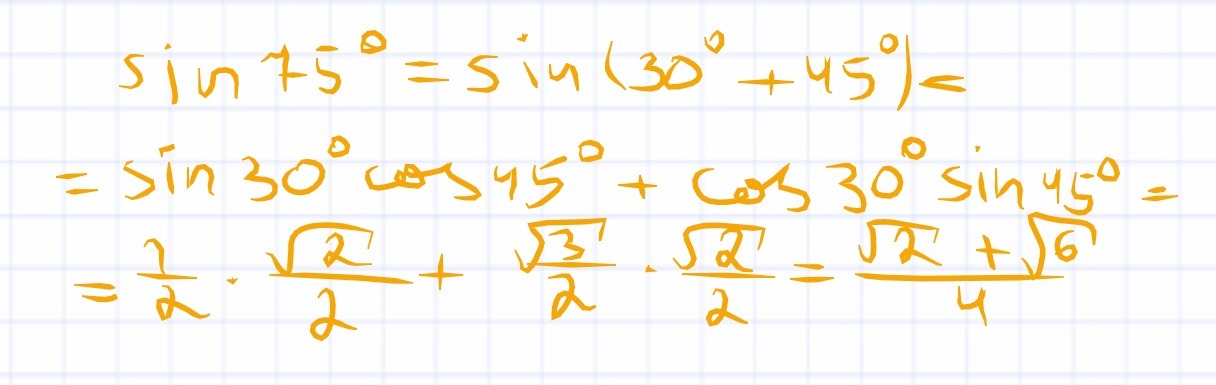 sin 75° = sin (30° + 45°) =
= sin 30° cos 45° + cos 30° sin 45° =
= 1/2 · √2/2 + √3/2 · √2/2 = (√2 + √6)/4